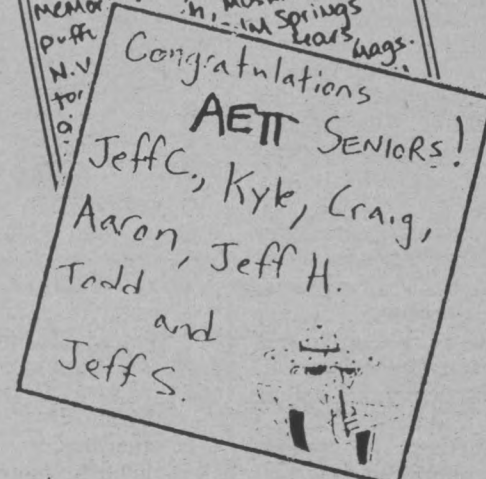 puffh
N.V
for
a
Springs
tears, hags.
Congratulations
AEΠ SENIORS!
Jeff C., Kyle, Craig,
Aaron, Jeff H.
Todd
and
Jeff S.